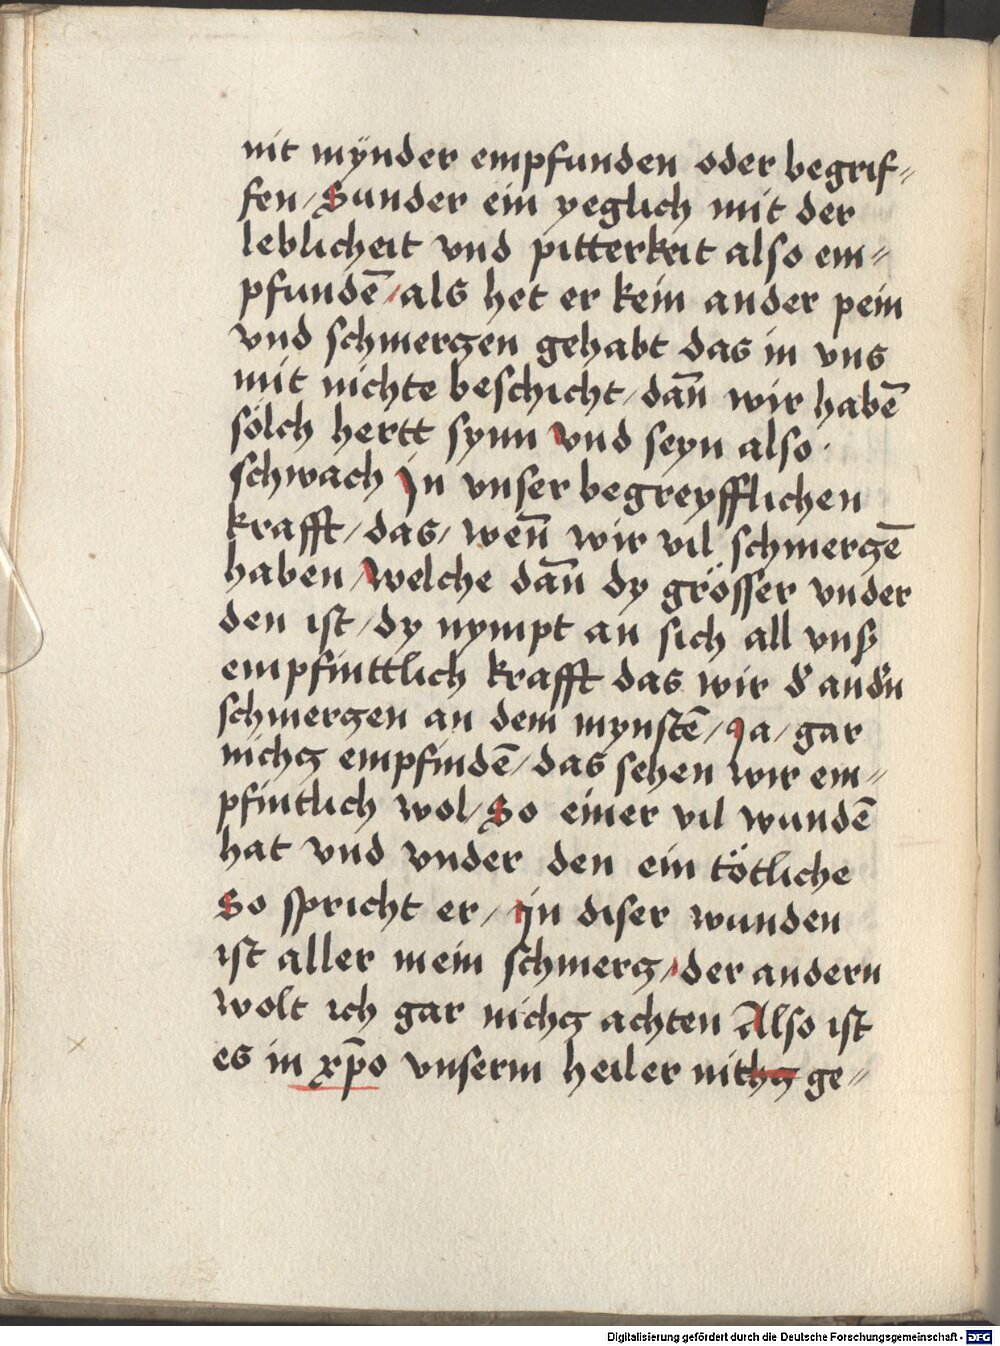 nit mÿnder empfunden oder begrif⸗
fen / Sunder ein yeglich mit der
leblicheit vnd pitterkeit also em⸗
pfundē / als het er kein ander pein
vnd schmerczen gehabt das in vns
mit nichte beschicht / dan̄ wir habē
sölch hertt synn vnd seyn also ·
schwach Jn vnser begreyfflichen
krafft / das / wen̄ wir vil schmerczē
haben / Welche dan̄ dy grösser vnder
den ist / dy nympt an sich all vnß
empfinttlich krafft das wir d̓ and̓n
schmerczen an dem mynstē / Ja / gar
nichcz empfindē / das sehen wir em⸗
pfintlich wol / So einer vil wundē
hat vnd vnder den ein tötliche
So spricht er / Jn diser wunden
ist aller mein schmercz / der andern
wolt ich gar nichcz achten Also ist
es in xp̄o vnserm heiler nithcz ge⸗
Digitalisierung gefördert durch die Deutsche Forschungsgemeinschaft - DFG